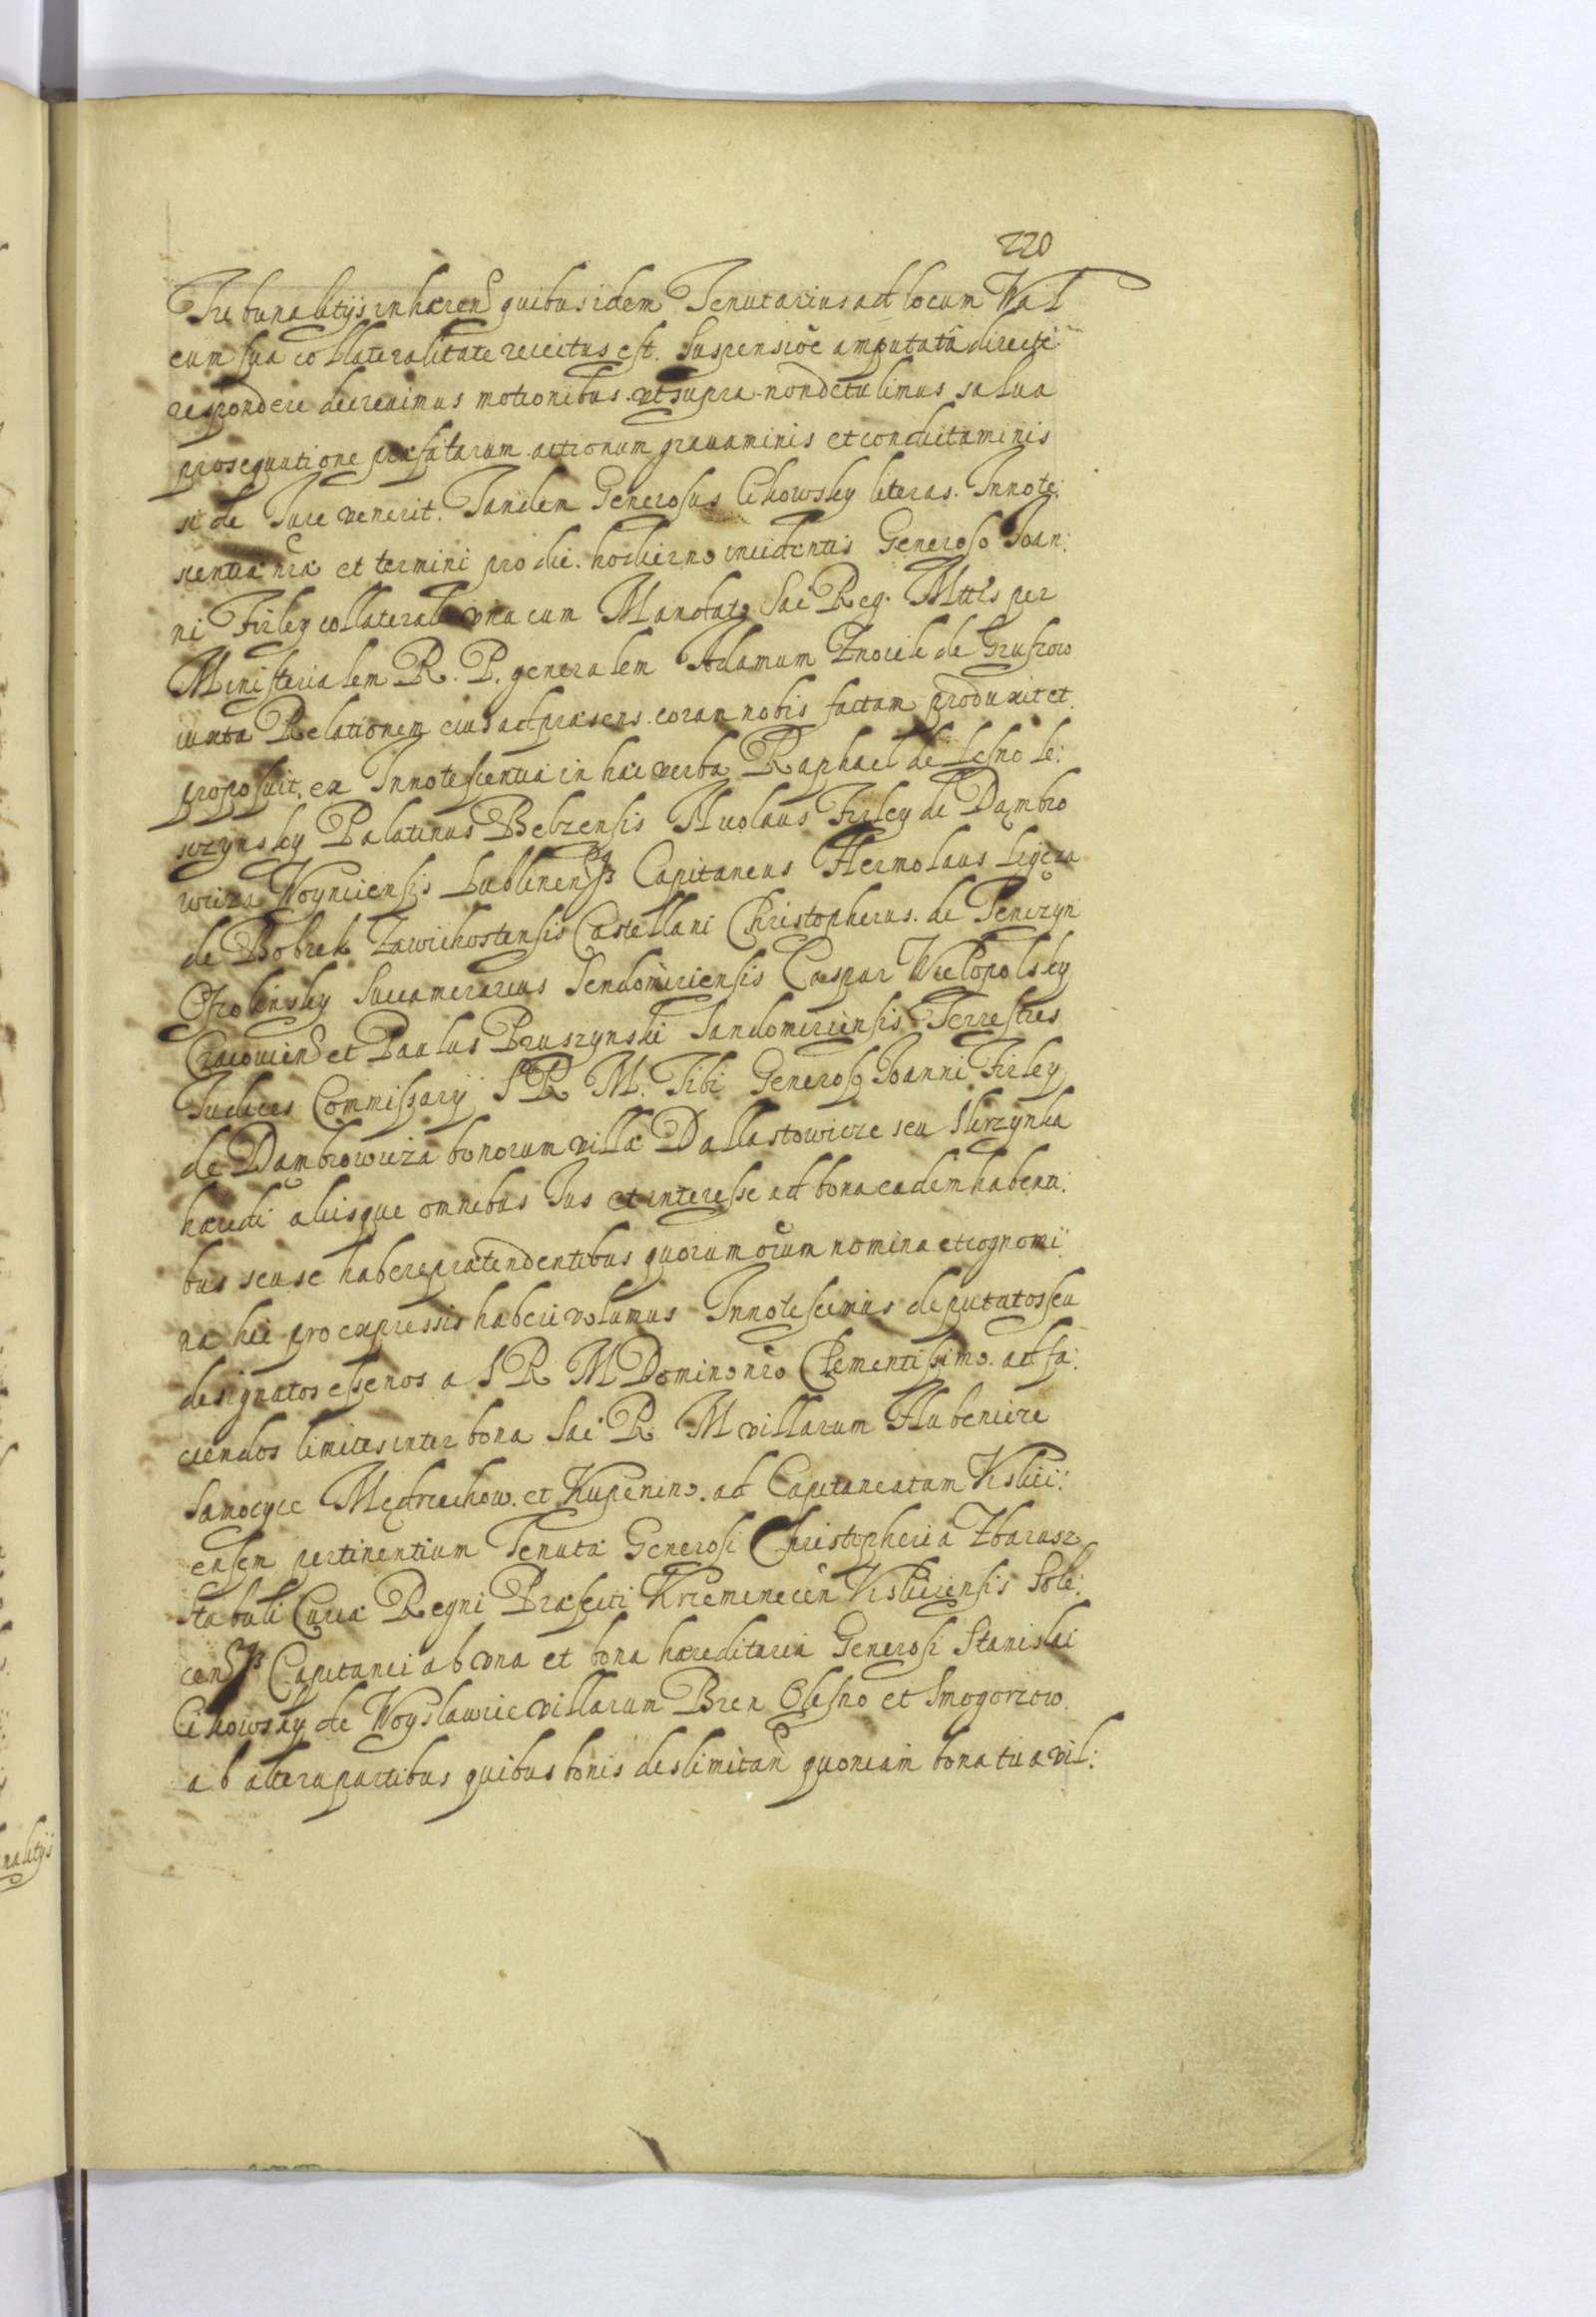 220
Tribunalitijs inhaerend quibus idem Tenutarius ad locum Wal
cum sua collateralitate reiectus est. Suspensioe amputata directe
respondere decreuimus motionibus ut supra non detulimus salua
prosequutione praefatarum actionum grauaminis et conductaminis
si de Iure venerit. Tandem Generosus Cikowsky literas Innote:
scentia nra et termini pro die hodierno incidentis Generoso Ioan:
ni Firley collaterali una cum Mandato Sac Reg. Mttis per
Ministerialem R. P. generalem Adamum Znoiek de Gruszow
iuxta Relationem eius ad praesens coram nobis factam produxit et
proposuit. ex Innotescentia in haec verba Raphael de Lesno Le:
szczynsky Palatinus Belzensis Nicolaus Firley de Dąmbro
wicza Woyniciensis Lublinensisqz Capitaneus Hermolaus Ligęza
de Bobrek Zawichostensis Castellani Christopherus de Tenczyn
Ossolinsky Succamerarius Sendomiriensis Caspar Wielopolsky
Cracouien et Paulus Pruszynski Sandomiriensis Terrestres
Iudices Commissarij S R M. Tibi Generoso Ioanni Firley
de Dąmbrowicza bonorum villae Dallastowicze seu Skrzynka
haeredi aliisque omnibus Ius et interesse ad bona eadem habenti:
bus seu se habere praetendentibus quorum oium nomina et cognomi:
na hic pro expressis haberi volumus Innotescimus deputatos seu
designatos esse nos a S R M Domino nro Clementissimo ad fa:
ciendos limites inter bona Sac R M villarum Hubenicze
Samocyce Mędrzechow et Kupienino ad Capitaneatum Vislici:
ensem pertinentium Tenutae Generosi Christopheri a Zbarasz
Stabuli Curiae Regni Praefecti Krzemenecen Visliciensis Sole:
censqz Capitanei ab una et bona haereditaria Generosi Stanislai
Cikowsky de Woyslawice villarum Bren Olesno et Smogorzow
ab altera partibus quibus bonis deslimitand quoniam bona tua vil:
nalitijs